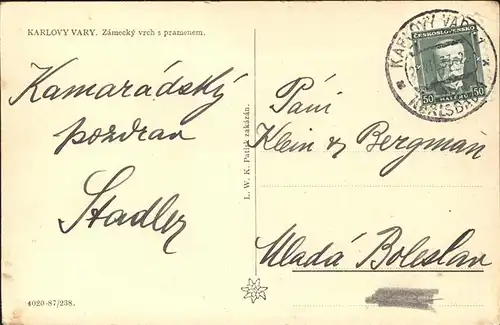 KARLOVY VARY. Zámecký vrch s pramenem.
Kamarádský
pozdrav
Stadler
4020-87/238.
L. W. K. Patisk zakázán.
KARLOVY VARY 1
KARLSBAD
ČESKOSLOVENSKO
50 HALÉŘŮ 50
Páni
Klein & Bergman
Mladá Boleslav